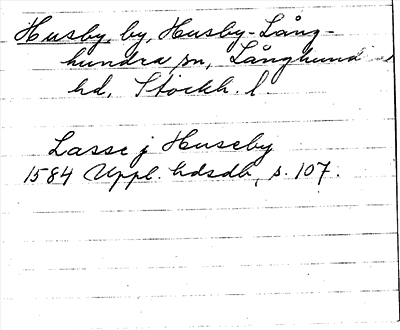 Husby, by, Husby-Lång-
hundra sn, Långhund
hd, Stockh. l.
Lasse j Huseby
1584 Uppl. hdsdb, s. 107.